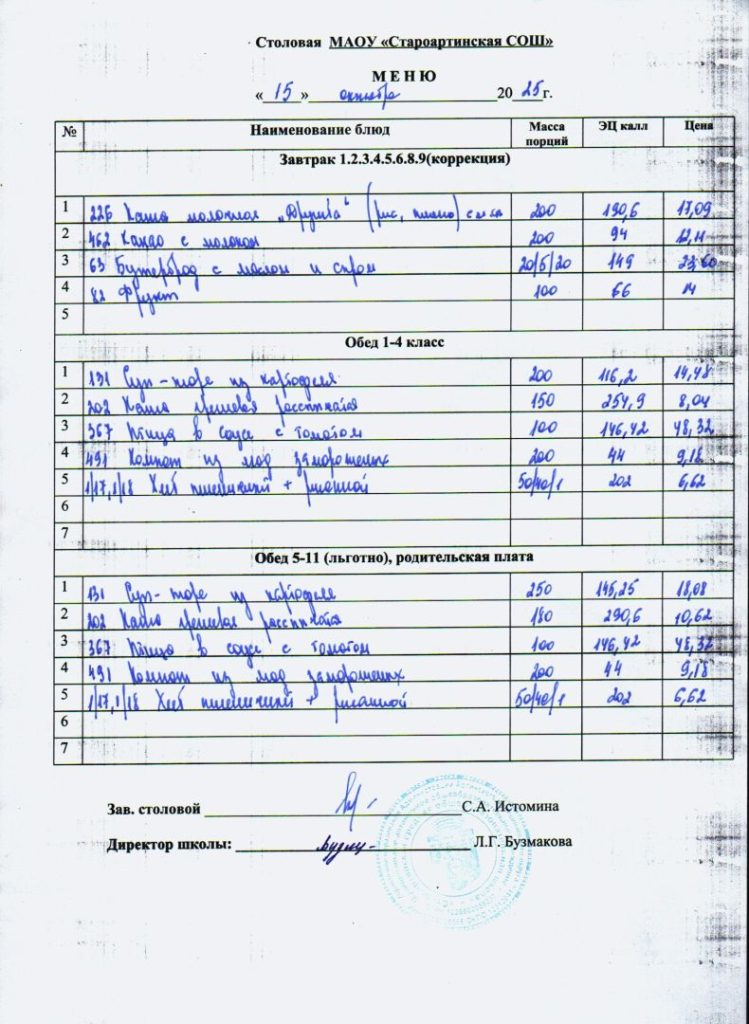 Столовая МАОУ «Староартинская СОШ»
МЕНЮ
« 15 » октября 20 25 г.
№ Наименование блюд Масса порций ЭЦ калл Цена
Завтрак 1.2.3.4.5.6.8.9(коррекция)
1 226 Каша молочная „Дружба“ (рис, пшено) 200 190,6 17,09
2 462 Какао с молоком 200 94 12,11
3 63 Бутерброд с маслом и сыром 20/5/20 149 23,60
4 82 Фрукт 100 66 14
5
Обед 1-4 класс
1 131 Суп-пюре из картофеля 200 116,2 14,48
2 202 Каша гречневая рассыпчатая 150 254,9 8,04
3 367 Птица в соусе с томатом 100 146,42 48,32
4 491 Компот из мороженых 200 44 9,18
5 1/17,1/18 Хлеб пшеничный + ржаной 50/40/1 202 6,62
6
7
Обед 5-11 (льготно), родительская плата
1 131 Суп-пюре из картофеля 250 145,25 18,08
2 202 Каша гречневая рассыпчатая 180 290,6 10,62
3 367 Птица в соусе с томатом 100 146,42 48,32
4 491 Компот из 200 44 9,18
5 1/17,1/18 Хлеб пшеничный + ржаной 50/40/1 202 6,62
6
7
Зав. столовой С.А. Истомина
Директор школы: Л.Г. Бузмакова